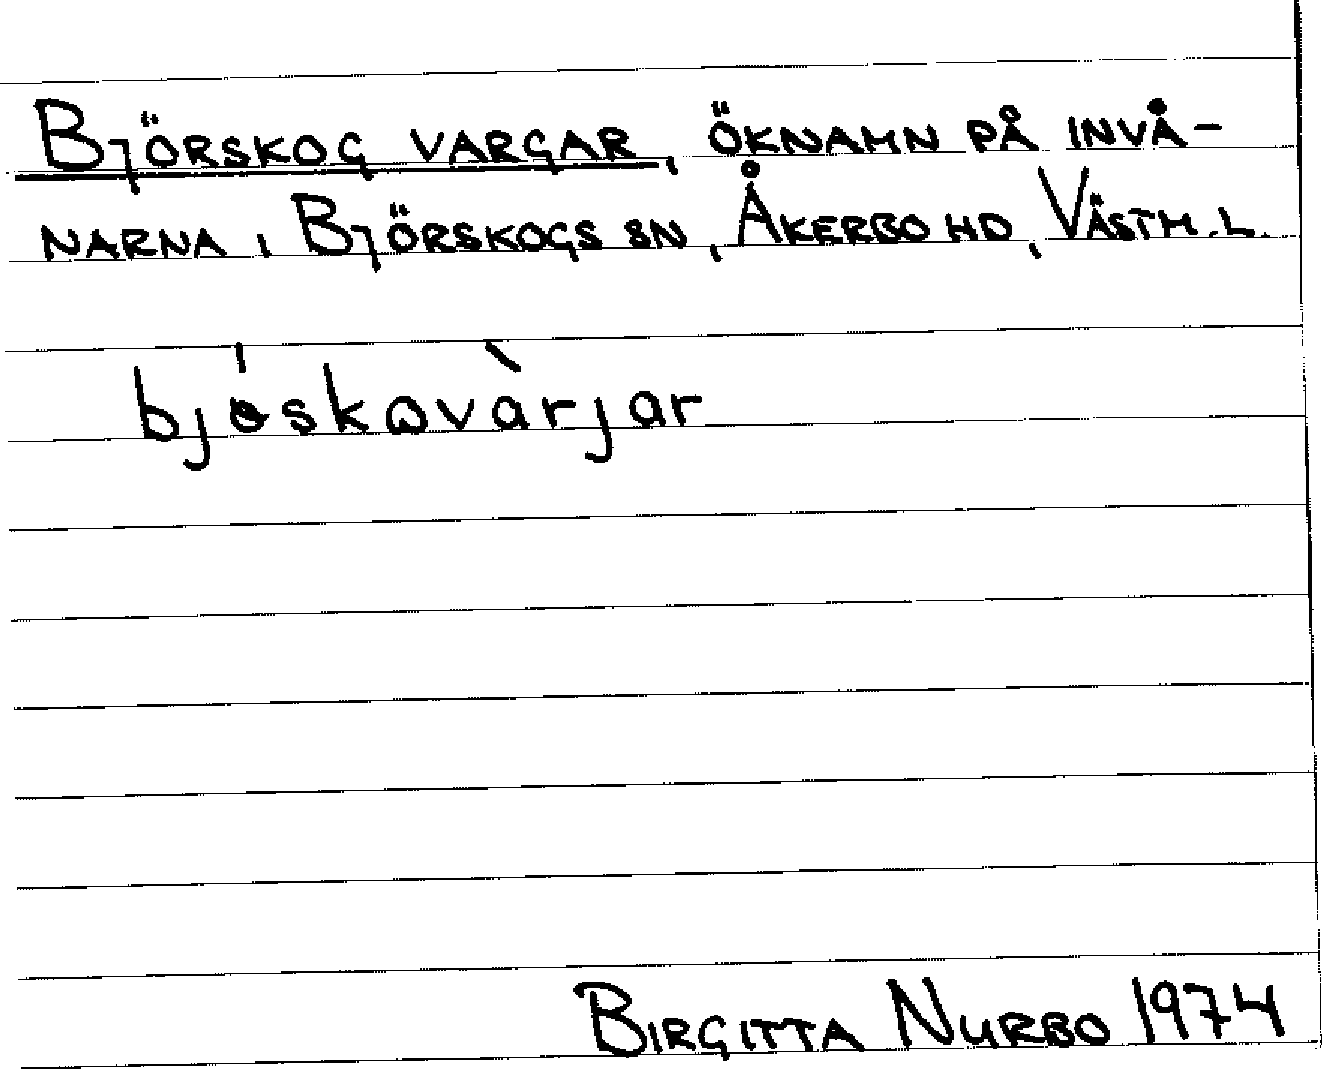 Björskog vargar, öknamn på invå-
narna i Björskogs sn, Åkerbo hd, Västm.l.
bjöskavàrjar
Birgitta Nurbo 1974